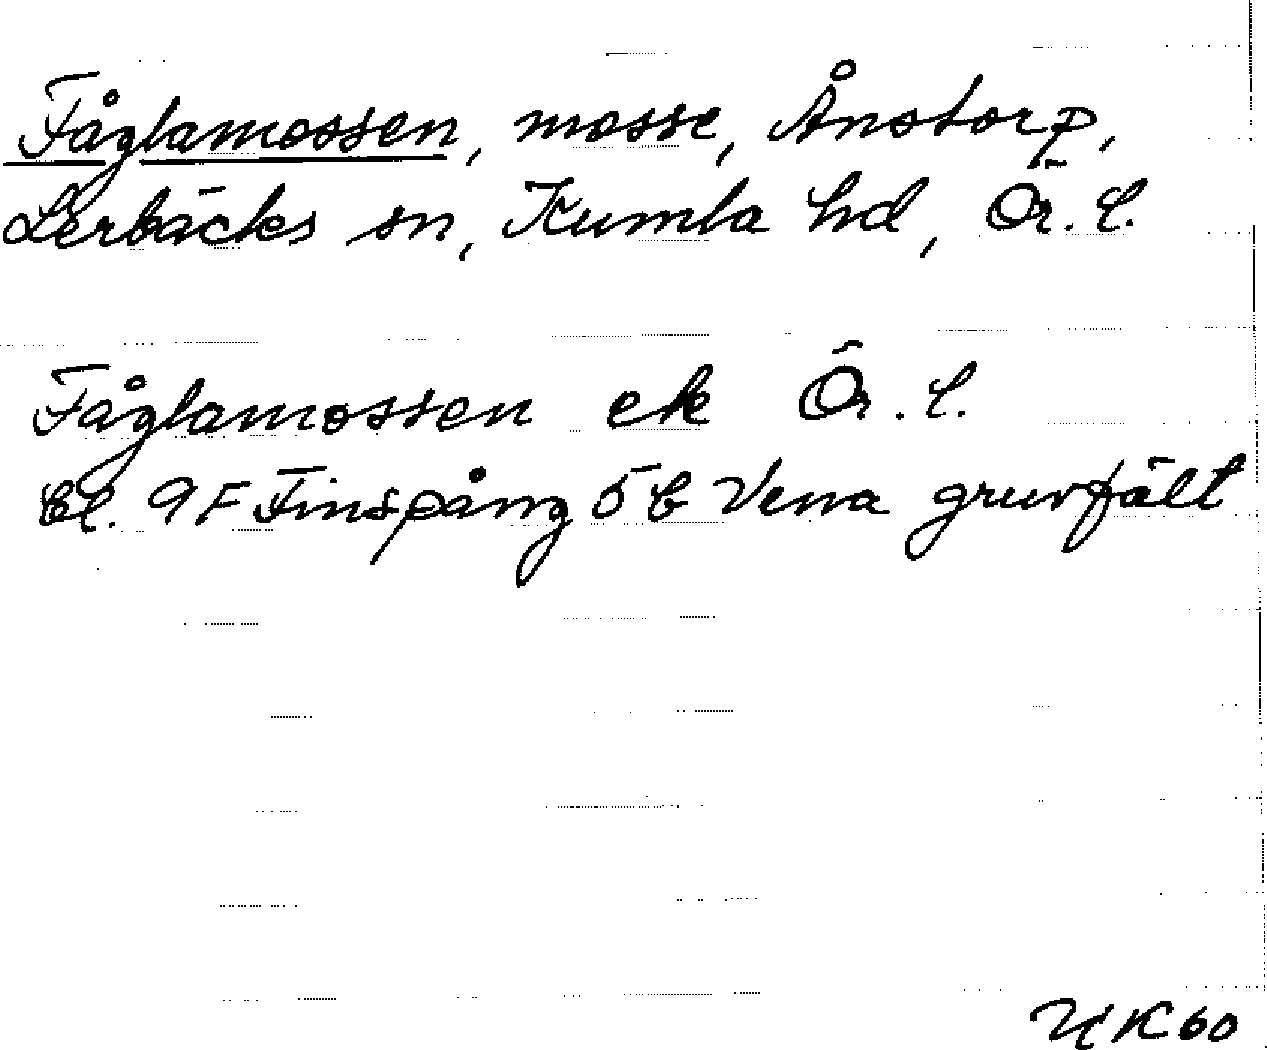 Fåglamossen, mosse, Ånstorp,
Lerbäcks sn, Kumla hd, Ör. l.
Fåglamossen ek Ör. l.
bl. 9F Finspång 5b Vena gruvfält
NK60